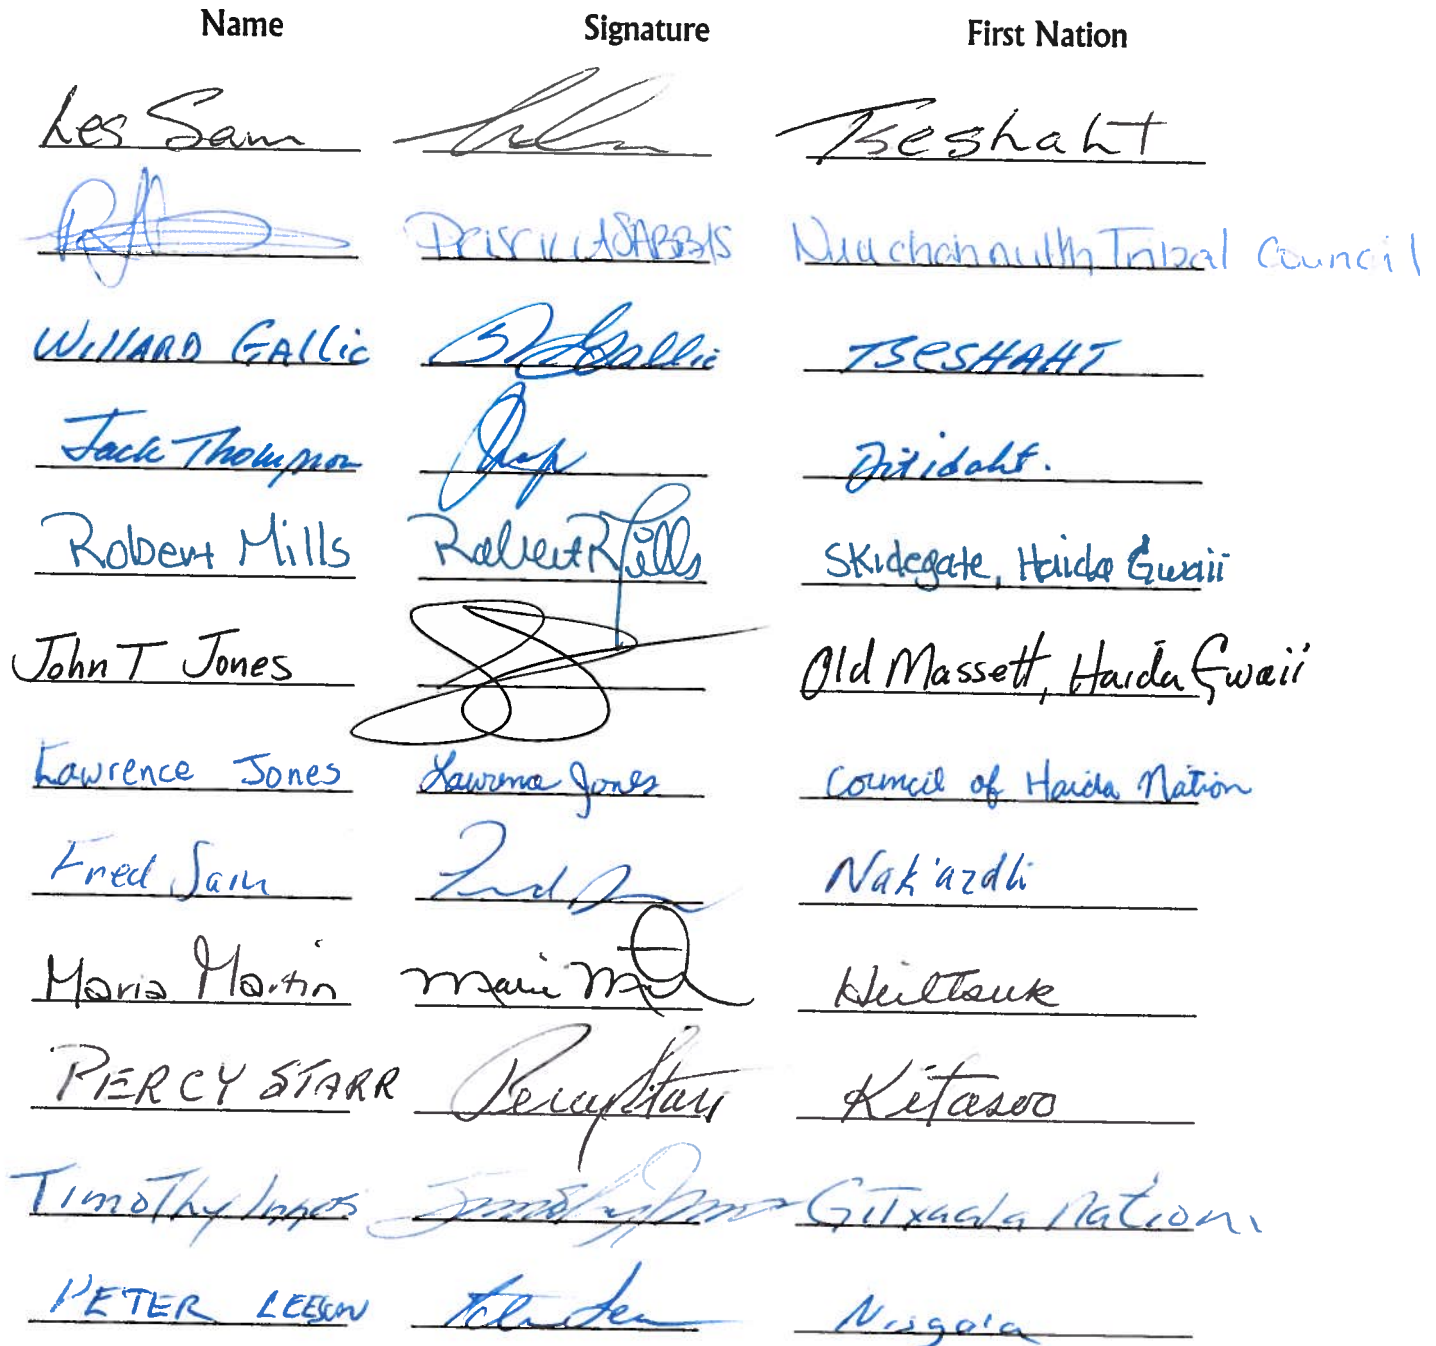 Name Signature First Nation
Les Sam Tseshaht
Priscilla SABBAS Nuuchahnulth Tribal Council
WILLARD GALLIC Gallic TSESHAHT
Jack Thompson Ditidaht.
Robert Mills Robert R Mills Skidegate, Haida Gwaii
John T Jones Old Massett, Haida Gwaii
Lawrence Jones Lawrence Jones Council of Haida Nation
Fred Sam Nak'azdli
Maria Martin Heiltsuk
PERCY STARR Percy Starr Kitasoo
Timothy Innes Timothy Innes GiTxaala Nation.
PETER LEESON Nisga'a